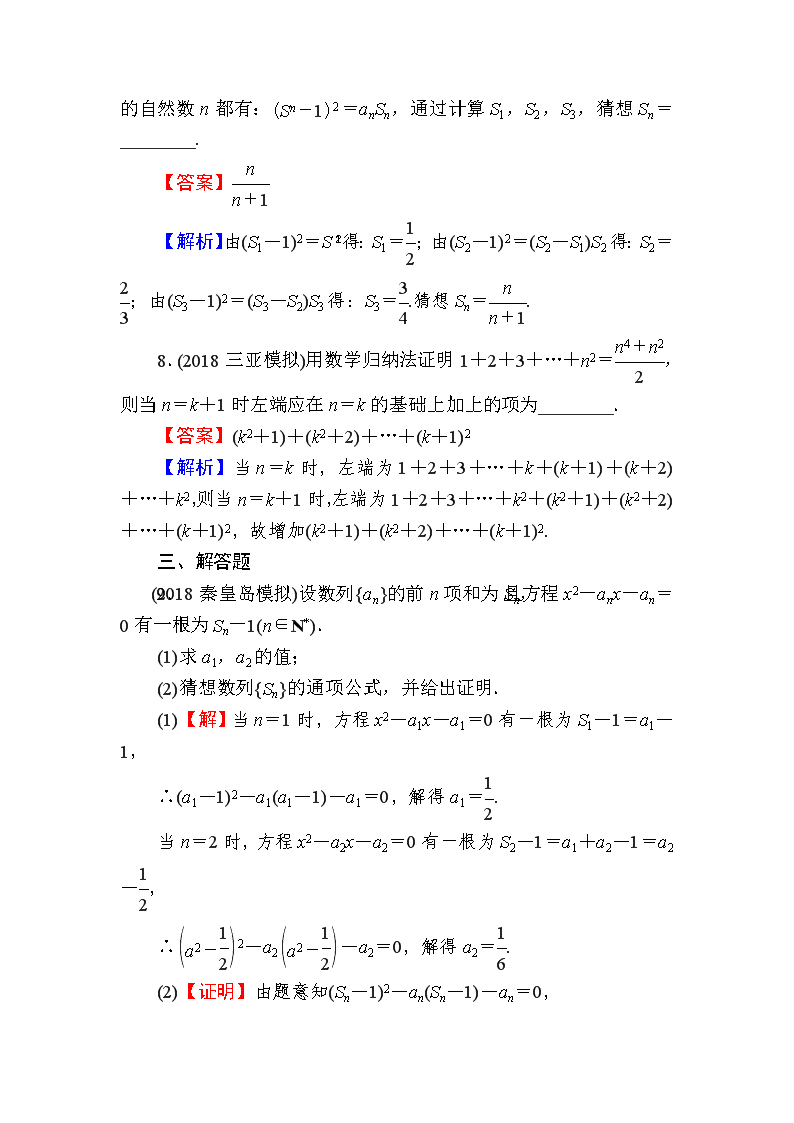 的自然数 n 都有：(Sn－1)2＝anSn，通过计算 S1，S2，S3，猜想 Sn＝
________.
【答案】n/(n＋1)
【解析】由(S1－1)2＝S12得：S1＝1/2；由(S2－1)2＝(S2－S1)S2得：S2＝
2/3；由(S3－1)2＝(S3－S2)S3得：S3＝3/4.猜想 Sn＝n/(n＋1).
8．(2018 三亚模拟)用数学归纳法证明 1＋2＋3＋…＋n2＝(n4＋n2)/2，
则当 n＝k＋1 时左端应在 n＝k 的基础上加上的项为________.
【答案】(k2＋1)＋(k2＋2)＋…＋(k＋1)2
【解析】当 n＝k 时，左端为 1＋2＋3＋…＋k＋(k＋1)＋(k＋2)
＋…＋k2,则当 n＝k＋1 时,左端为 1＋2＋3＋…＋k2＋(k2＋1)＋(k2＋2)
＋…＋(k＋1)2，故增加(k2＋1)＋(k2＋2)＋…＋(k＋1)2.
三、解答题
9．(2018 秦皇岛模拟)设数列{an}的前 n 项和为 Sn,且方程 x2－anx－an＝
0 有一根为 Sn－1(n∈N*)．
(1)求 a1，a2的值；
(2)猜想数列{Sn}的通项公式，并给出证明．
(1)【解】当 n＝1 时，方程 x2－a1x－a1＝0 有一根为 S1－1＝a1－
1，
∴(a1－1)2－a1(a1－1)－a1＝0，解得 a1＝1/2.
当 n＝2 时，方程 x2－a2x－a2＝0 有一根为 S2－1＝a1＋a2－1＝a2
－1/2，
∴(a2－1/2)2－a2(a2－1/2)－a2＝0，解得 a2＝1/6.
(2)【证明】由题意知(Sn－1)2－an(Sn－1)－an＝0，